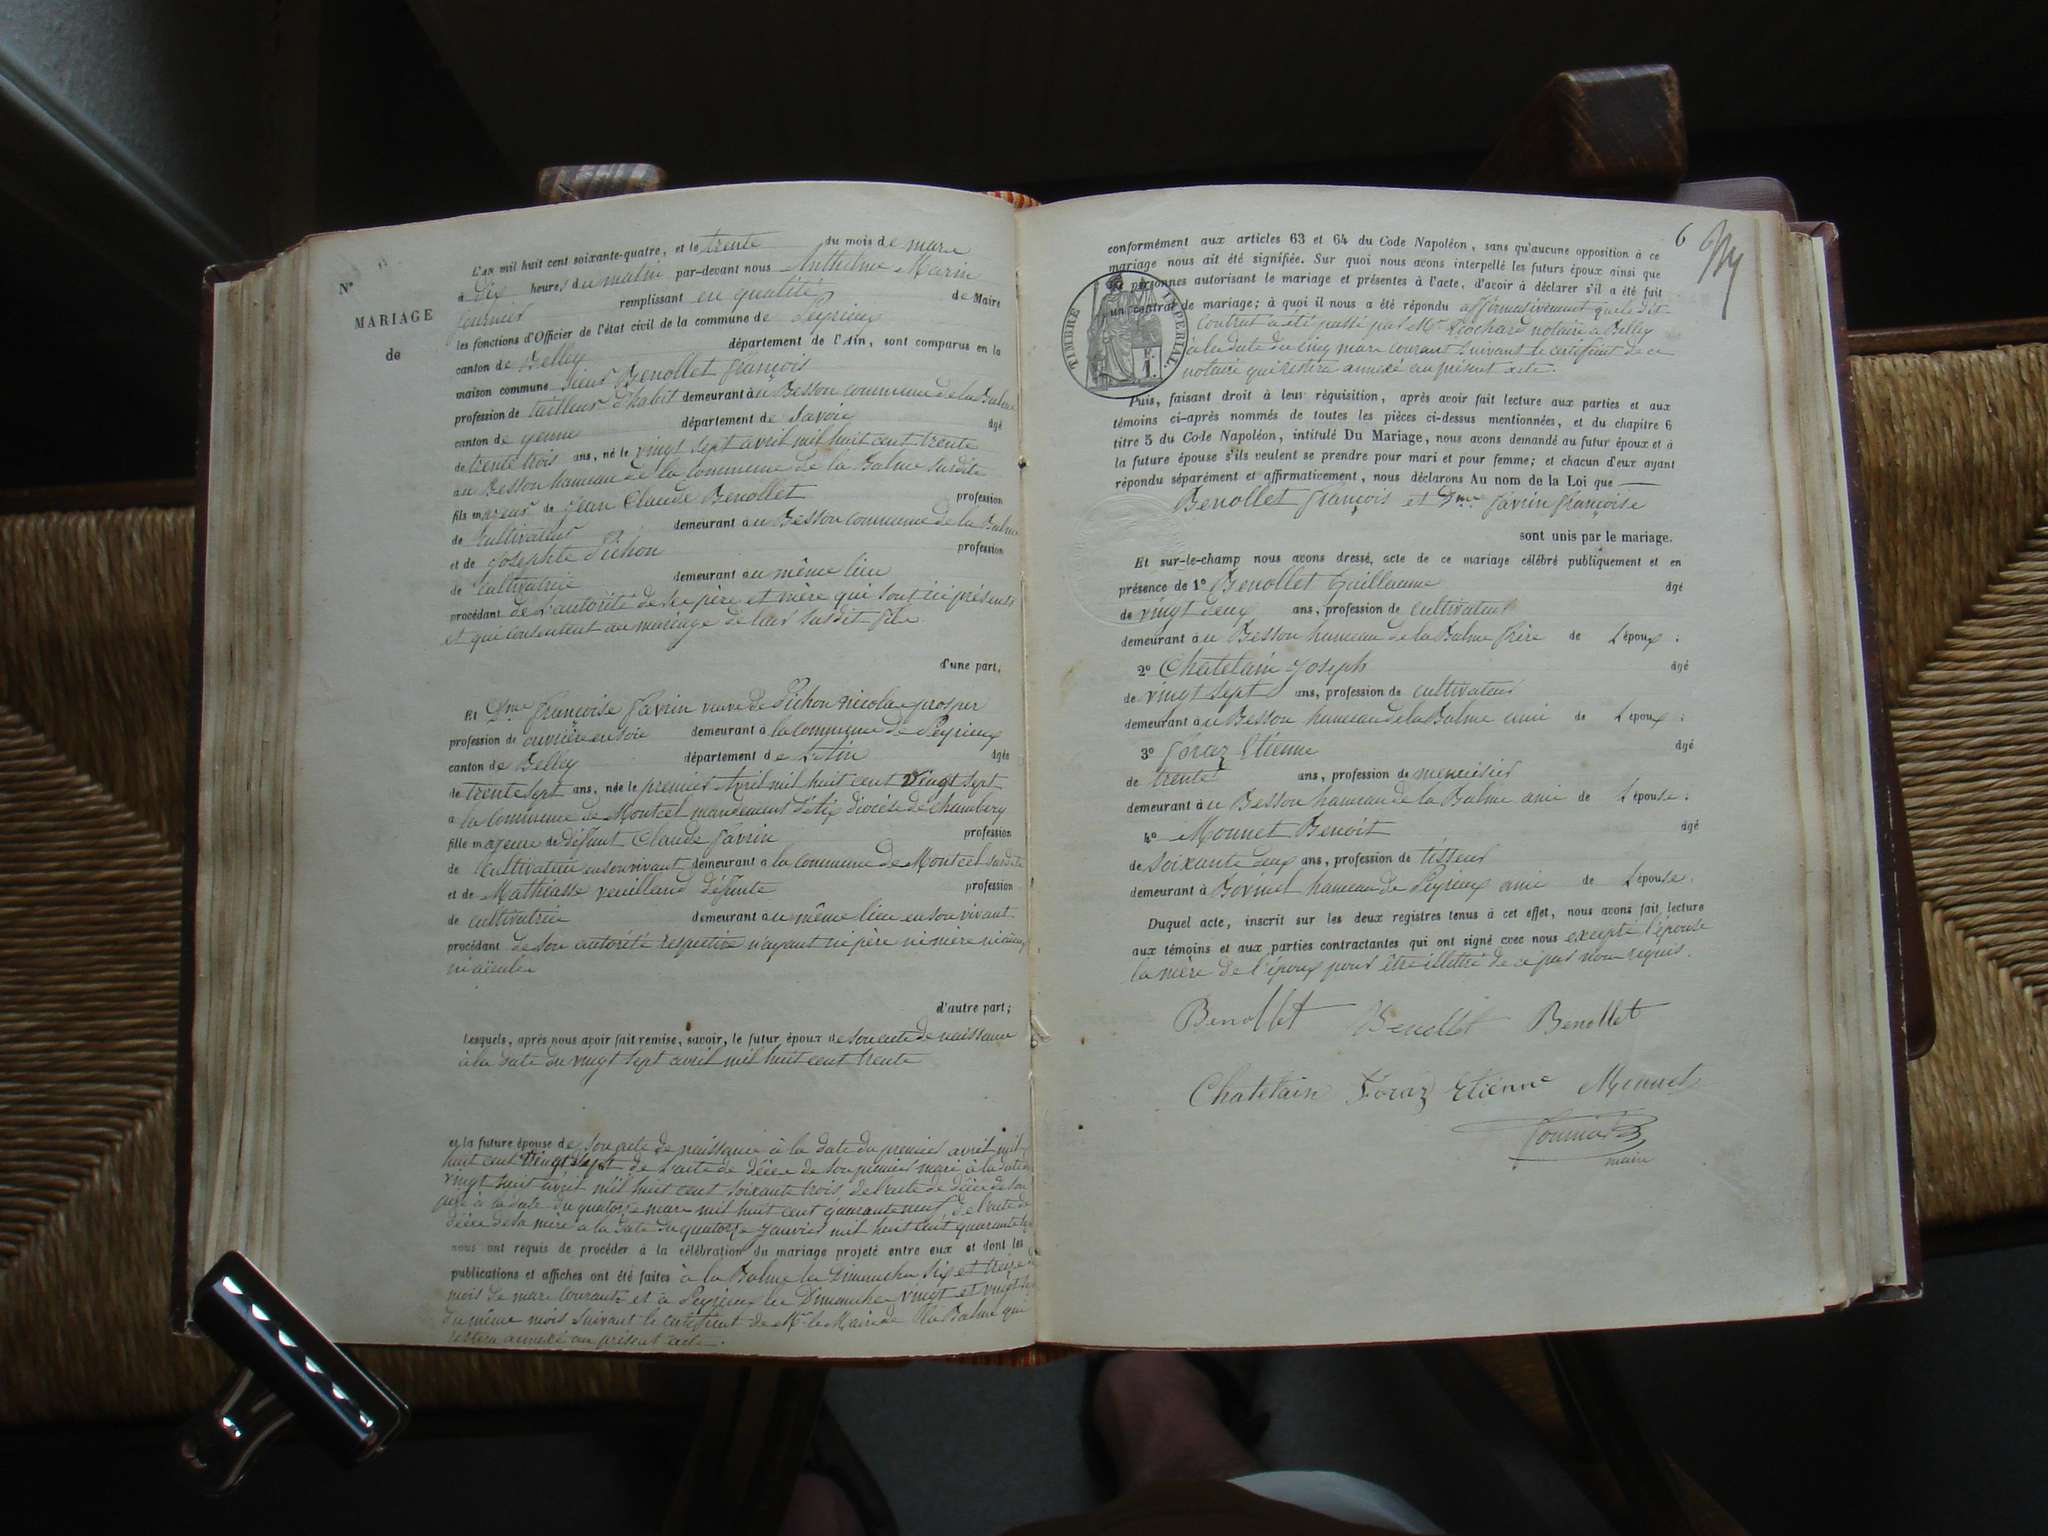 N°
MARIAGE
de
L'an mil huit cent soixante-quatre, et le trente du mois de mars
à dix heures du matin par-devant nous Anthelme Marin
fournier remplissant en qualité de Maire
les fonctions d'Officier de l'état civil de la commune de Peyrieux
canton de Belley département de l'Ain, sont comparus en la
maison commune sieur Benollet françois
profession de tailleur d'habit demeurant au Besson commune de la Balme
canton de yenne département de Savoie âgé
de trente trois ans, né le vingt sept avril mil huit cent trente
au Besson hameau de la Commune de la Balme susdite
fils majeur de Jean Claude Benollet profession
de Cultivateur demeurant au Besson commune de la Balme
et de Josephte Pichon profession
de Cultivatrice demeurant au même lieu
procédant de l'autorité de ses père et mère qui sont ici présents
et qui consentent au mariage de leur susdit fils.
d'une part,
Et Dme françoise favrin veuve de Pichon nicolas prosper
profession de ouvrière en soie demeurant à la commune de Peyrieux
canton de Belley département de L'Ain âgée
de trente sept ans, née le premier Avril mil huit cent vingt sept
à la commune de Montcel mandement d'Aix diocèse de Chambery
fille majeure de défunt Claude favrin profession
de Cultivateur en son vivant demeurant à la commune de Montcel susdite
et de Mathiasse veuilland défunte profession
de cultivatrice demeurant au même lieu en son vivant
procédant de son autorité respective n'ayant ni père ni mère ni aïeux
ni aïeules
d'autre part;
Lesquels, après nous avoir fait remise, savoir, le futur époux de son acte de naissance
à la date du vingt sept avril mil huit cent trente
et la future épouse de son acte de naissance à la date du premier avril mil
huit cent vingt sept de l'acte de décès de son premier mari à la date du
vingt huit avril mil huit cent soixante trois, de l'acte de décès de son
père à la date du quatorze mars mil huit cent quarante neuf, de l'acte de
décès de sa mère à la date du quatorze janvier mil huit cent quarante
nous ont requis de procéder à la célébration du mariage projeté entre eux et dont les
publications et affiches ont été faites à la Balme les Dimanches six et treize du
mois de mars courant et à Peyrieux les Dimanches vingt et vingt sept
du même mois suivant le certificat de Mr le Maire de la Balme qui
restera annexé au présent acte.
6
conformément aux articles 63 et 64 du Code Napoléon, sans qu'aucune opposition à ce
mariage nous ait été signifiée. Sur quoi nous avons interpellé les futurs époux ainsi que
les personnes autorisant le mariage et présentes à l'acte, d'avoir à déclarer s'il a été fait
un contrat de mariage; à quoi il nous a été répondu affirmativement que le dit
Contrat a été passé par Mr Trochard notaire à Belley
à la date du cinq mars courant suivant le certificat de ce
notaire qui restera annexé au présent acte.
TIMBRE IMPERIAL
Puis, faisant droit à leur réquisition, après avoir fait lecture aux parties et aux
témoins ci-après nommés de toutes les pièces ci-dessus mentionnées, et du chapitre 6
titre 5 du Code Napoléon, intitulé Du Mariage, nous avons demandé au futur époux et à
la future épouse s'ils veulent se prendre pour mari et pour femme; et chacun d'eux ayant
répondu séparément et affirmativement, nous déclarons Au nom de la Loi que
Benollet françois et Dme favrin françoise
sont unis par le mariage.
Et sur-le-champ nous avons dressé, acte de ce mariage célébré publiquement et en
présence de 1° Benollet Guillaume âgé
de vingt deux ans, profession de cultivateur
demeurant au Besson hameau de la Balme frère de L'époux;
2° Chatelain Joseph âgé
de vingt sept ans, profession de cultivateur
demeurant au Besson hameau de la Balme ami de L'époux;
3° foraz Etienne âgé
de trente ans, profession de menuisier
demeurant au Besson hameau de la Balme ami de L'épouse;
4° Monnet Benoit âgé
de soixante deux ans, profession de tisseur
demeurant à Bovinel hameau de Peyrieux ami de L'épouse.
Duquel acte, inscrit sur les deux registres tenus à cet effet, nous avons fait lecture
aux témoins et aux parties contractantes qui ont signé avec nous excepté l'épouse
la mère de l'époux pour être illettré de ce par nous requis.
Benollet Benollet Benollet
Chatelain Foraz Etienne Monnet
fournier
maire